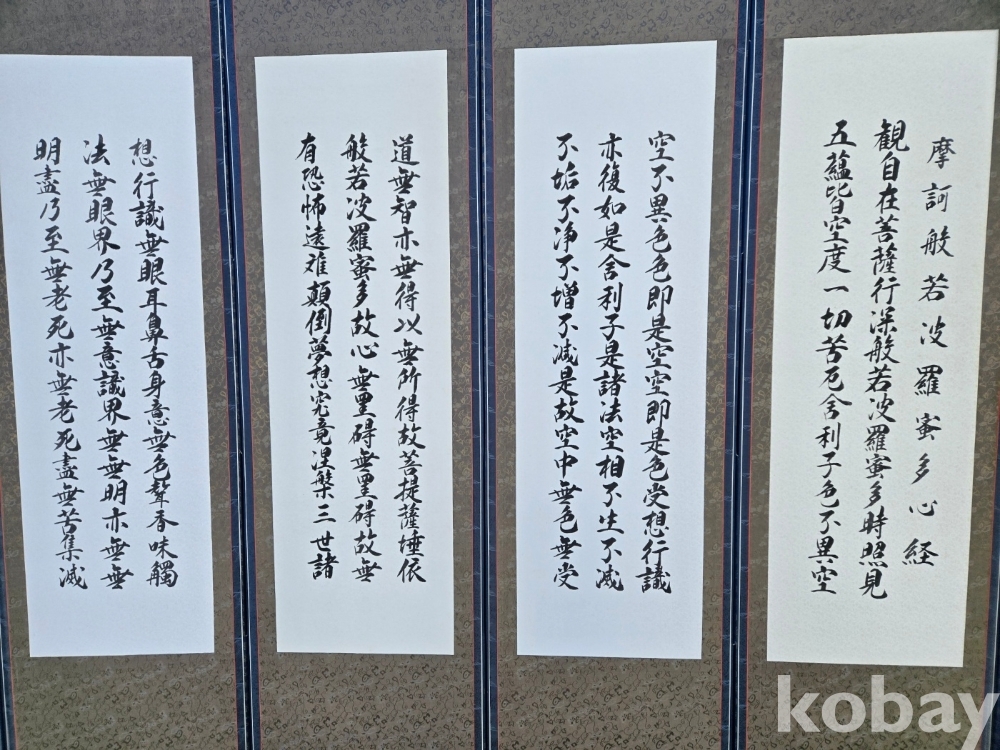 摩訶般若波羅蜜多心経
観自在菩薩行深般若波羅蜜多時照見
五蘊皆空度一切苦厄舍利子色不異空
空不異色色即是空空即是色受想行識
亦復如是舍利子是諸法空相不生不滅
不垢不浄不增不減是故空中無色無受
道無智亦無得以無所得故菩提薩埵依
般若波羅蜜多故心無罣碍無罣碍故無
有恐怖遠離顛倒夢想究竟涅槃三世諸
想行識無眼耳鼻舌身意無色聲香味觸
法無眼界乃至無意識界無無明亦無無
明盡乃至無老死亦無老死盡無苦集滅
kobay